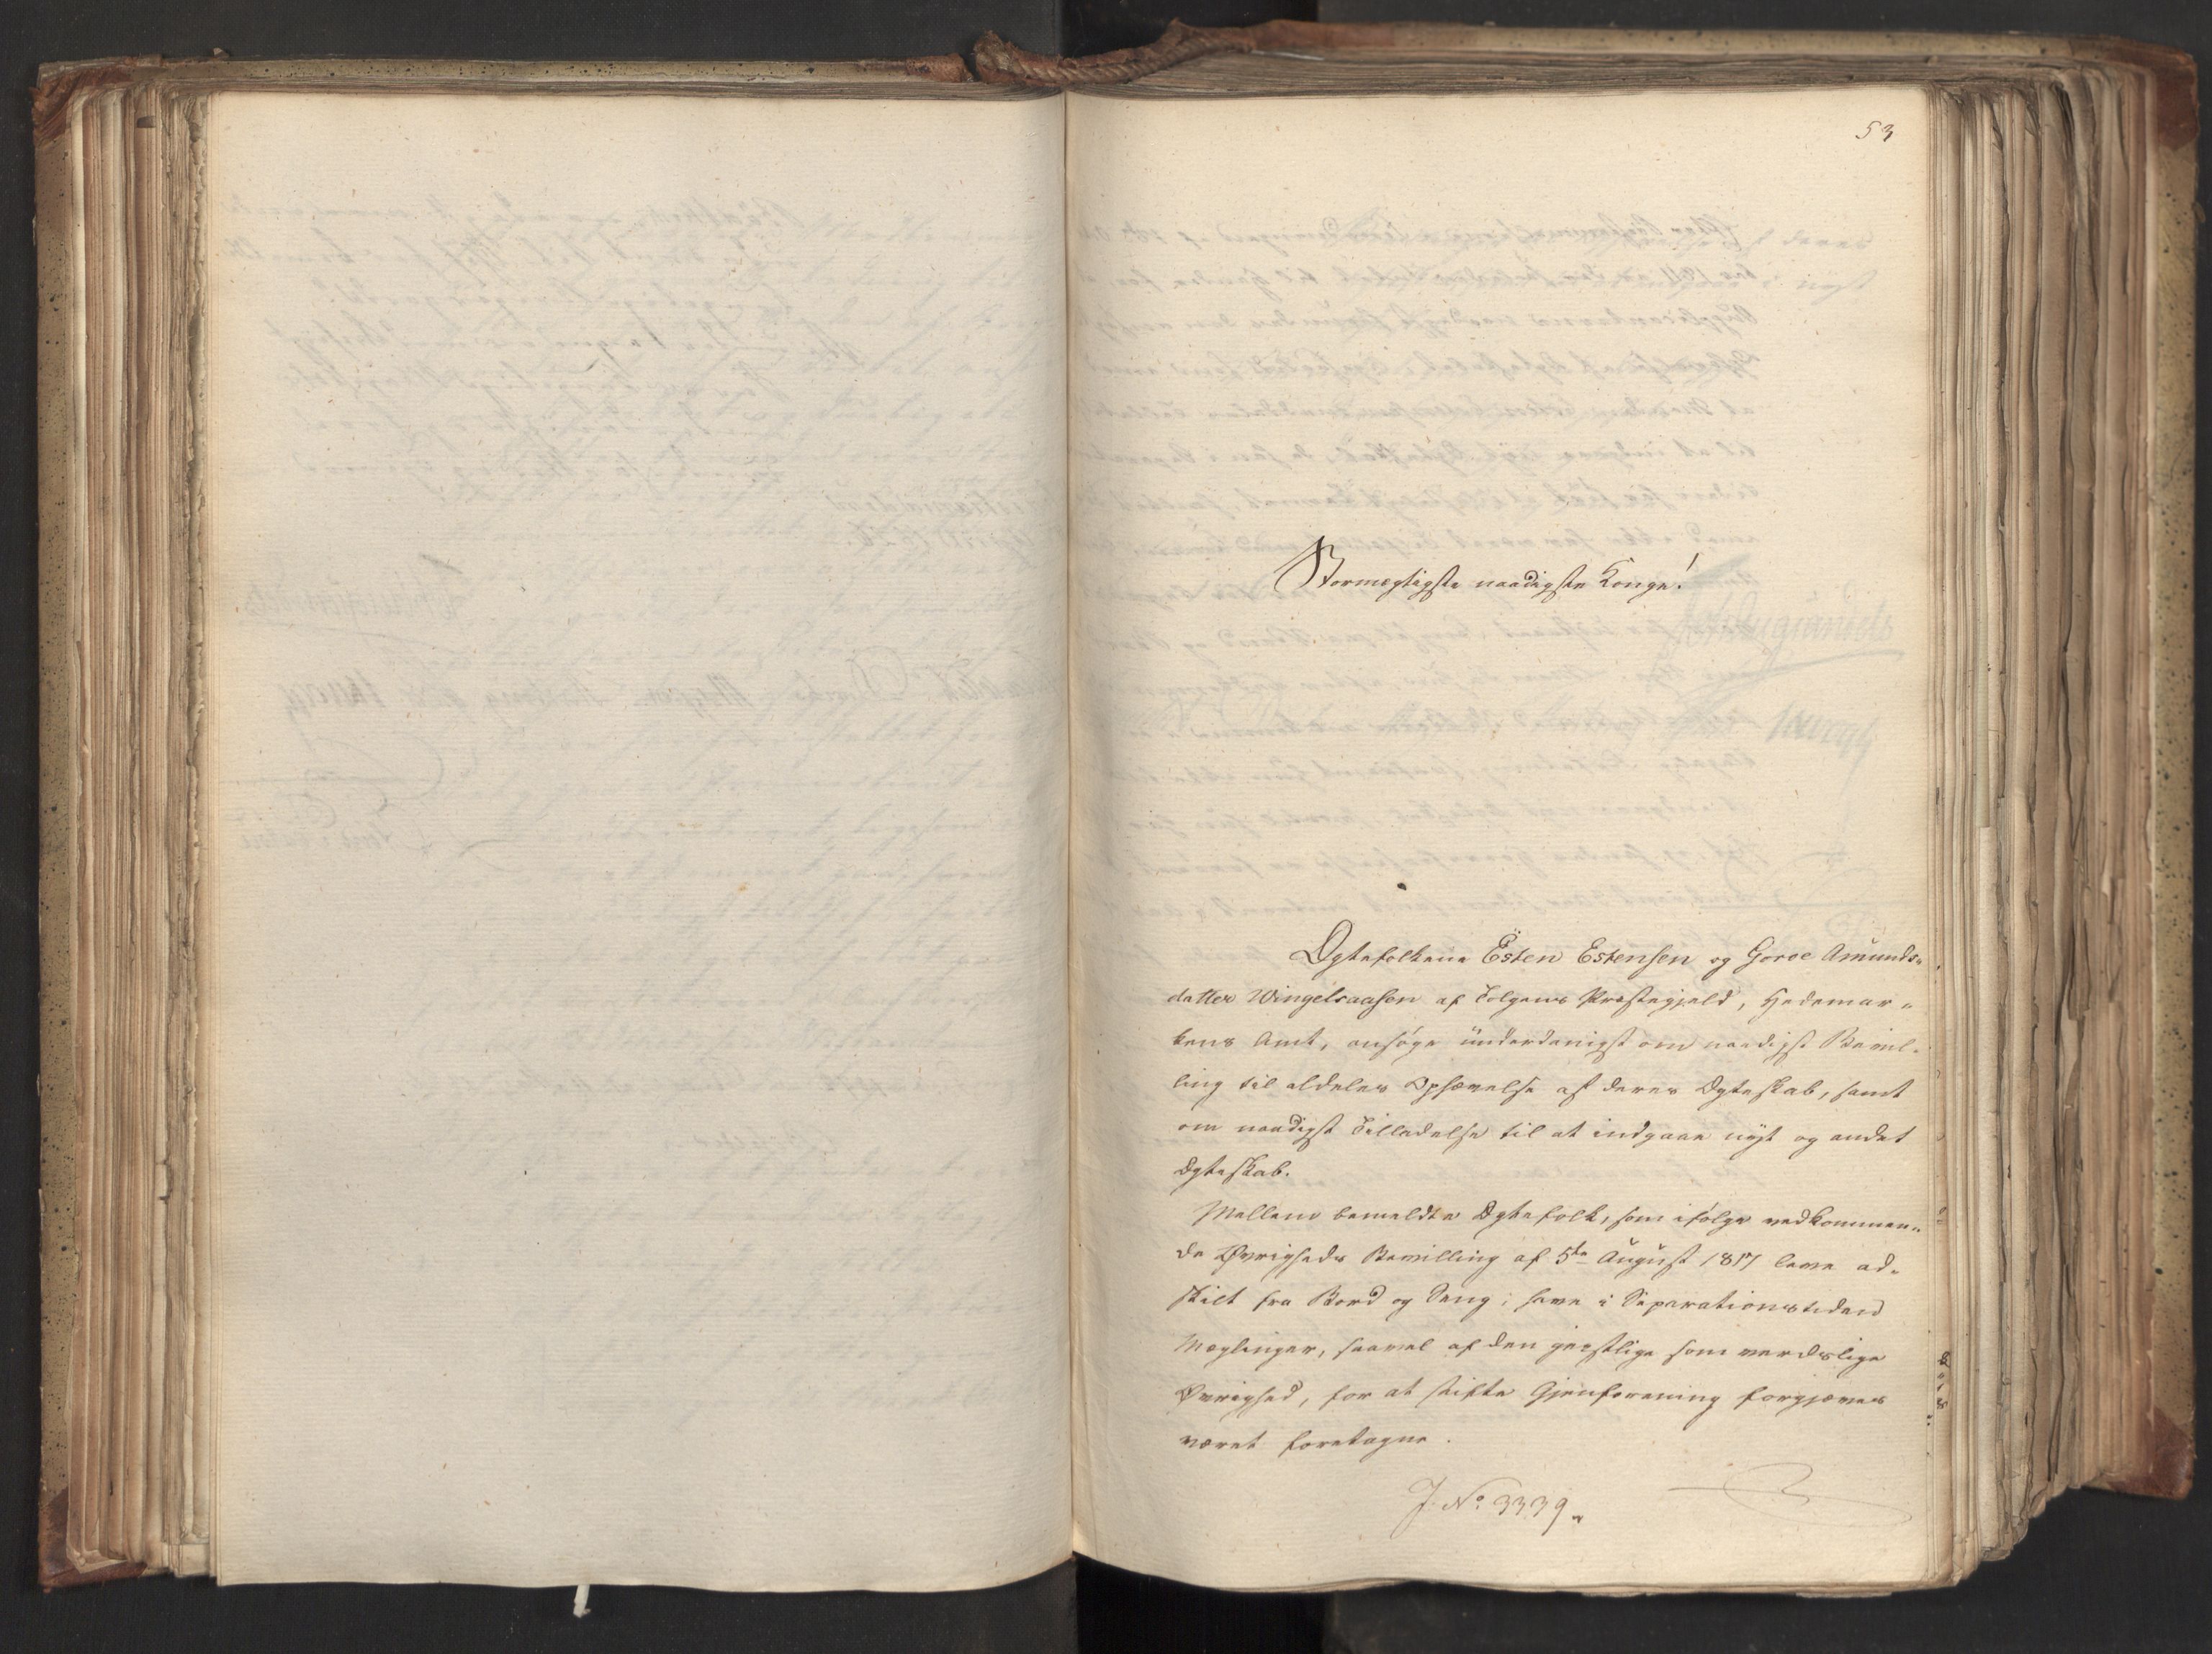 53
Stormægtigste naadigste Konge!
Ægtefolkene Esten Estensen og Goroe Amunds-
datter Wingelsaasen af Tolgens Præstegjeld, Hedemar-
kens Amt, ansøge underdanigst om naadigst Bevil-
ling til aldeles Ophævelse af deres Ægteskab, samt
om naadigst Tilladelse til at indgaae nyt og andet
Ægteskab.
Mellem bemeldte Ægtefolk, som ifølge vedkommen-
de Øvrigheds Bevilling af 5te August 1817 leve ad-
skilt fra Bord og Seng; have i Separationstiden
Mæglinger, saavel af den geistlige som verdslige
Øvrighed, for at stifte Gjenforening forgjæves
været foretagne.
J. No. 3339.